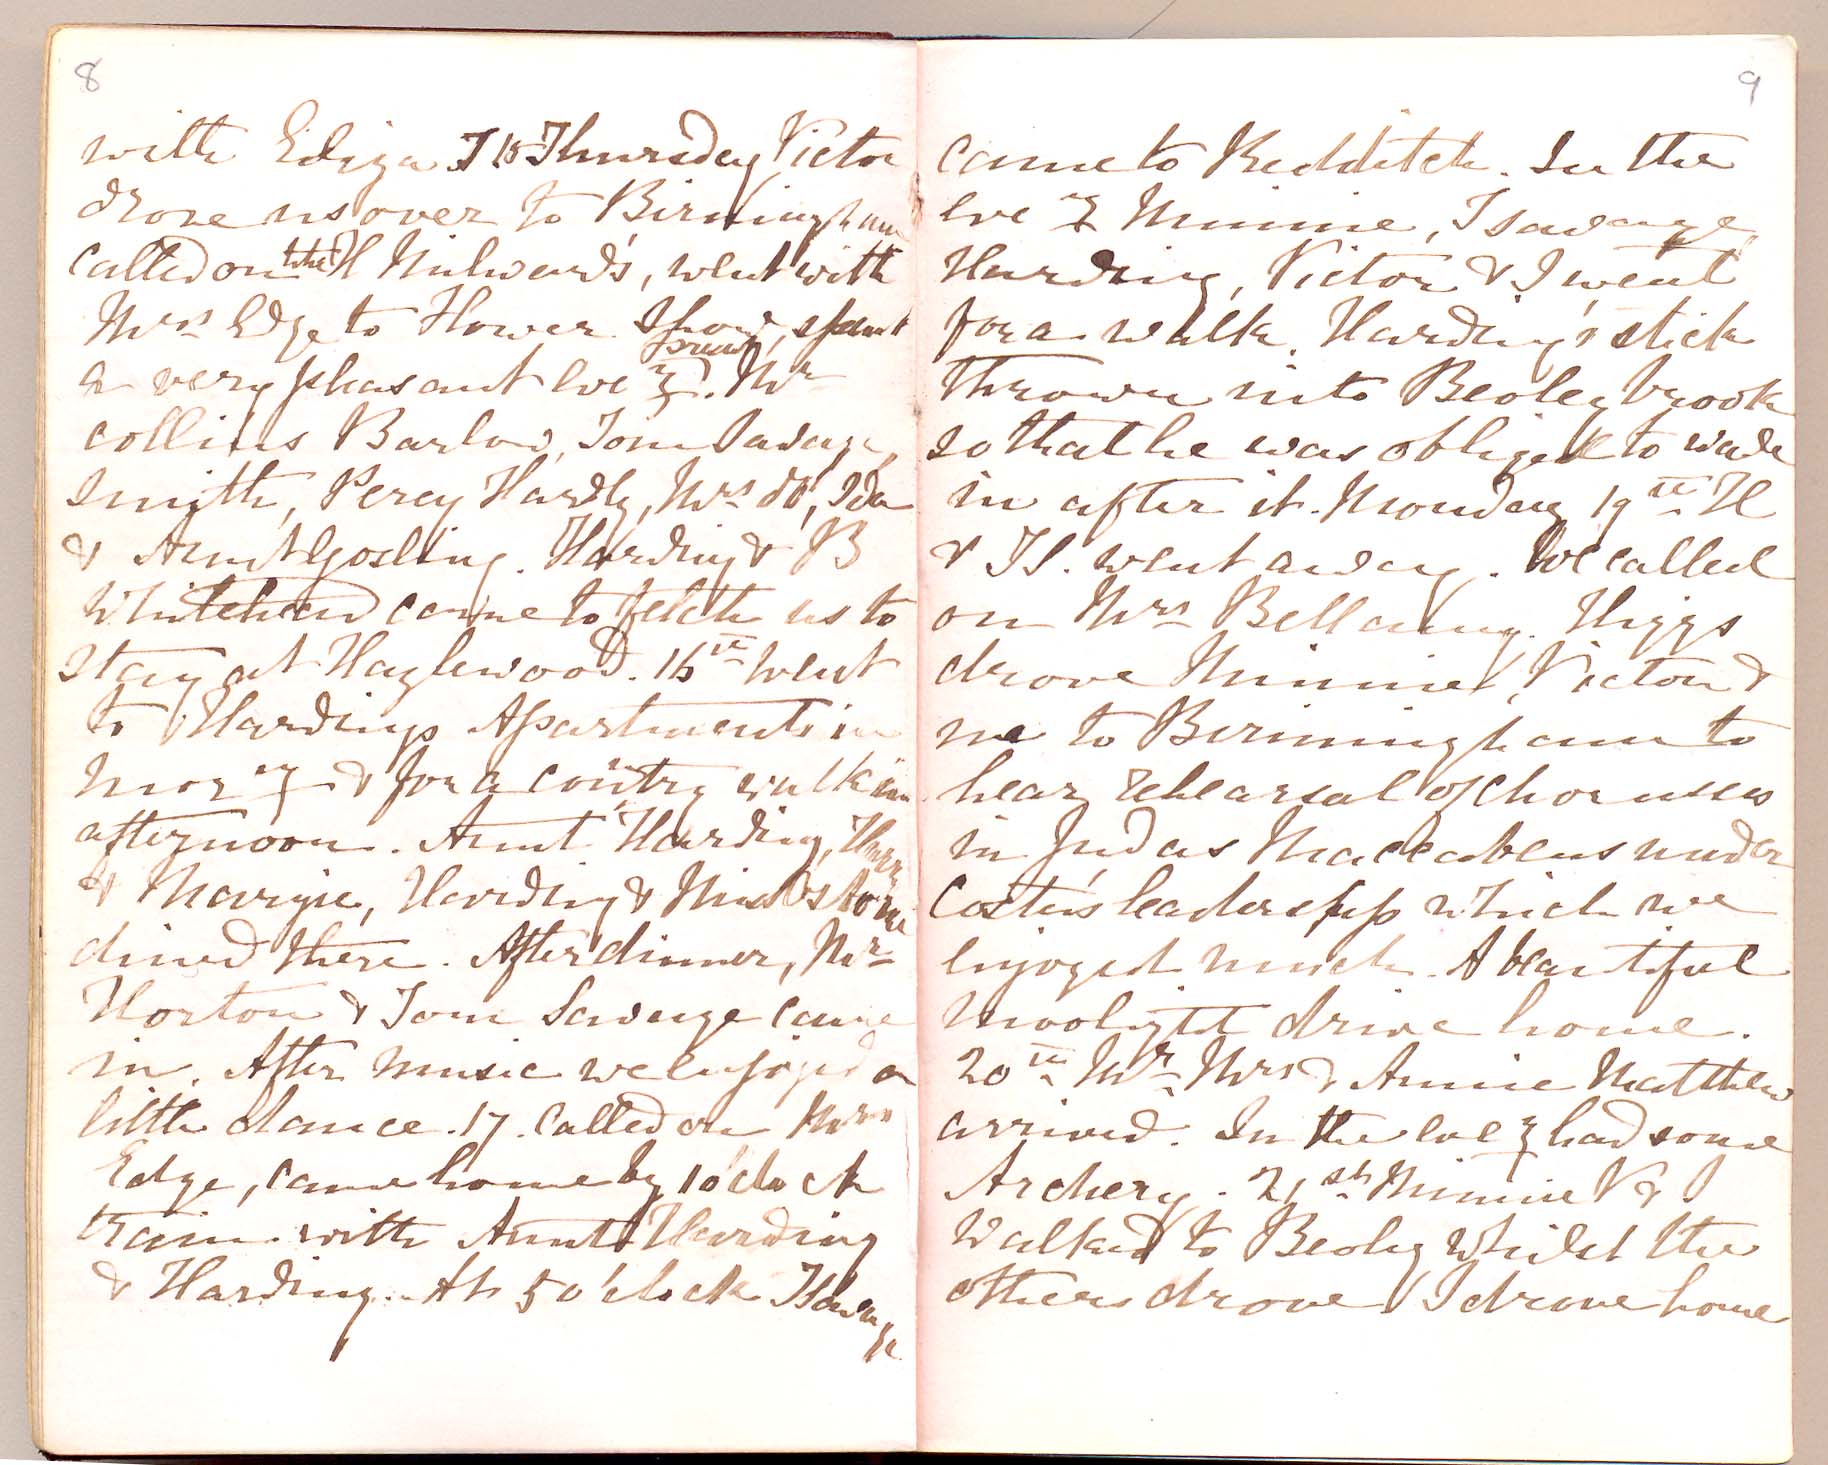 8
with Eliza J 15 Thursday Victor
drove us over to Birmingham
called on the H Milward's, went with
Mrs Edge to Flower Show, spent
a very pleasant eveg. Mr
Collins Barlow, Tom Savage,
Smith, Percy Hardy, Mrs do, Ida
& Aunt Gosling. Harding & B
Whitehead came to fetch us to
stay at Hazlewood. 16th Went
to Hardings Apartments in
morng & for a contry walk in
afternoon. Aunt Harding,
& Margie, Harding & Miss
dined there. After dinner, Mr
Horton & Tom Savage came
in. After music we enjoyed a
little dance. 17. Called on Mrs
Edge, came home by 1 o'clock
train with Aunt Harding
& Harding. At 5 o'clock T Savage
9
came to Redditch. In the
eveg Minnie, T Savage,
Harding, Victor & I went
for a walk. Harding's stick
thrown into Beoley brook
so that he was obliged to wade
in after it. Monday 19th H
& TS. went away. We called
on Mrs Bellamy. Higgs
drove Minnie, Victor &
me to Birmingham to
hear rehearsal of choruses
in Judas Maccabeus under
Costa's leadership which we
enjoyed much. A beautiful
moolight drive home.
20th Mr Mrs & Annie Matthews
arrived. In the eveg had some
Archery. 21st Minnie V & I
walked to Beoley whilst the
others drove, I drove home